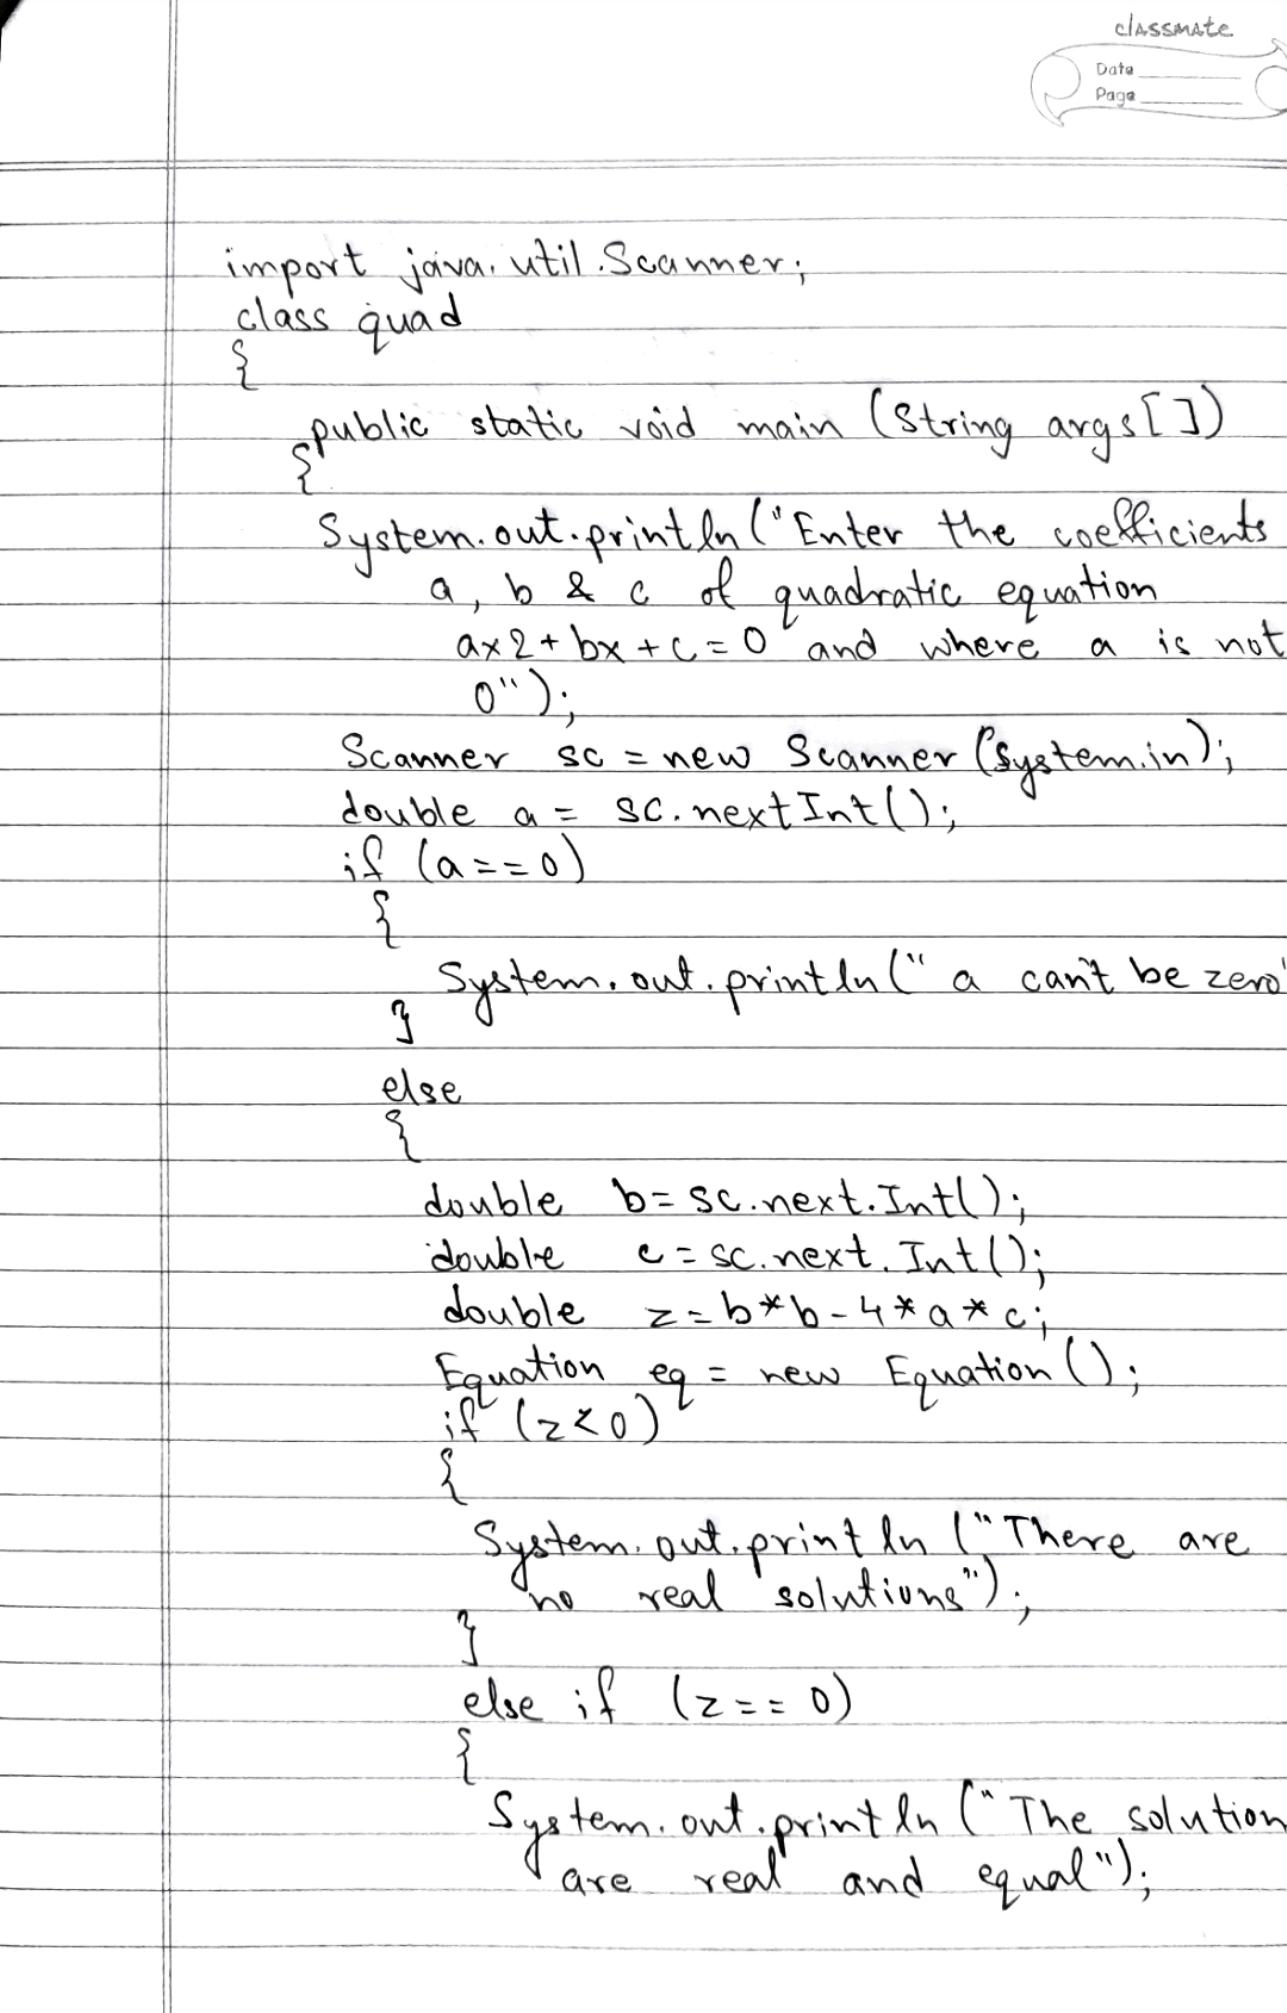 classmate
Date
Page
import java.util.Scanner;
class quad
{
public static void main (String args[])
{
System.out.println("Enter the coefficients
a, b & c of quadratic equation
ax2+bx+c=0 and where a is not
0");
Scanner sc = new Scanner (System.in);
double a = sc.nextInt();
if (a==0)
{
System.out.println(" a can't be zero"
}
else
{
double b=sc.next.Int();
double c=sc.next.Int();
double z=b*b-4*a*c;
Equation eq = new Equation();
if (z<0)
{
System.out.println ("There are
no real solutions");
}
else if (z==0)
{
System.out.println ("The solution
are real and equal");